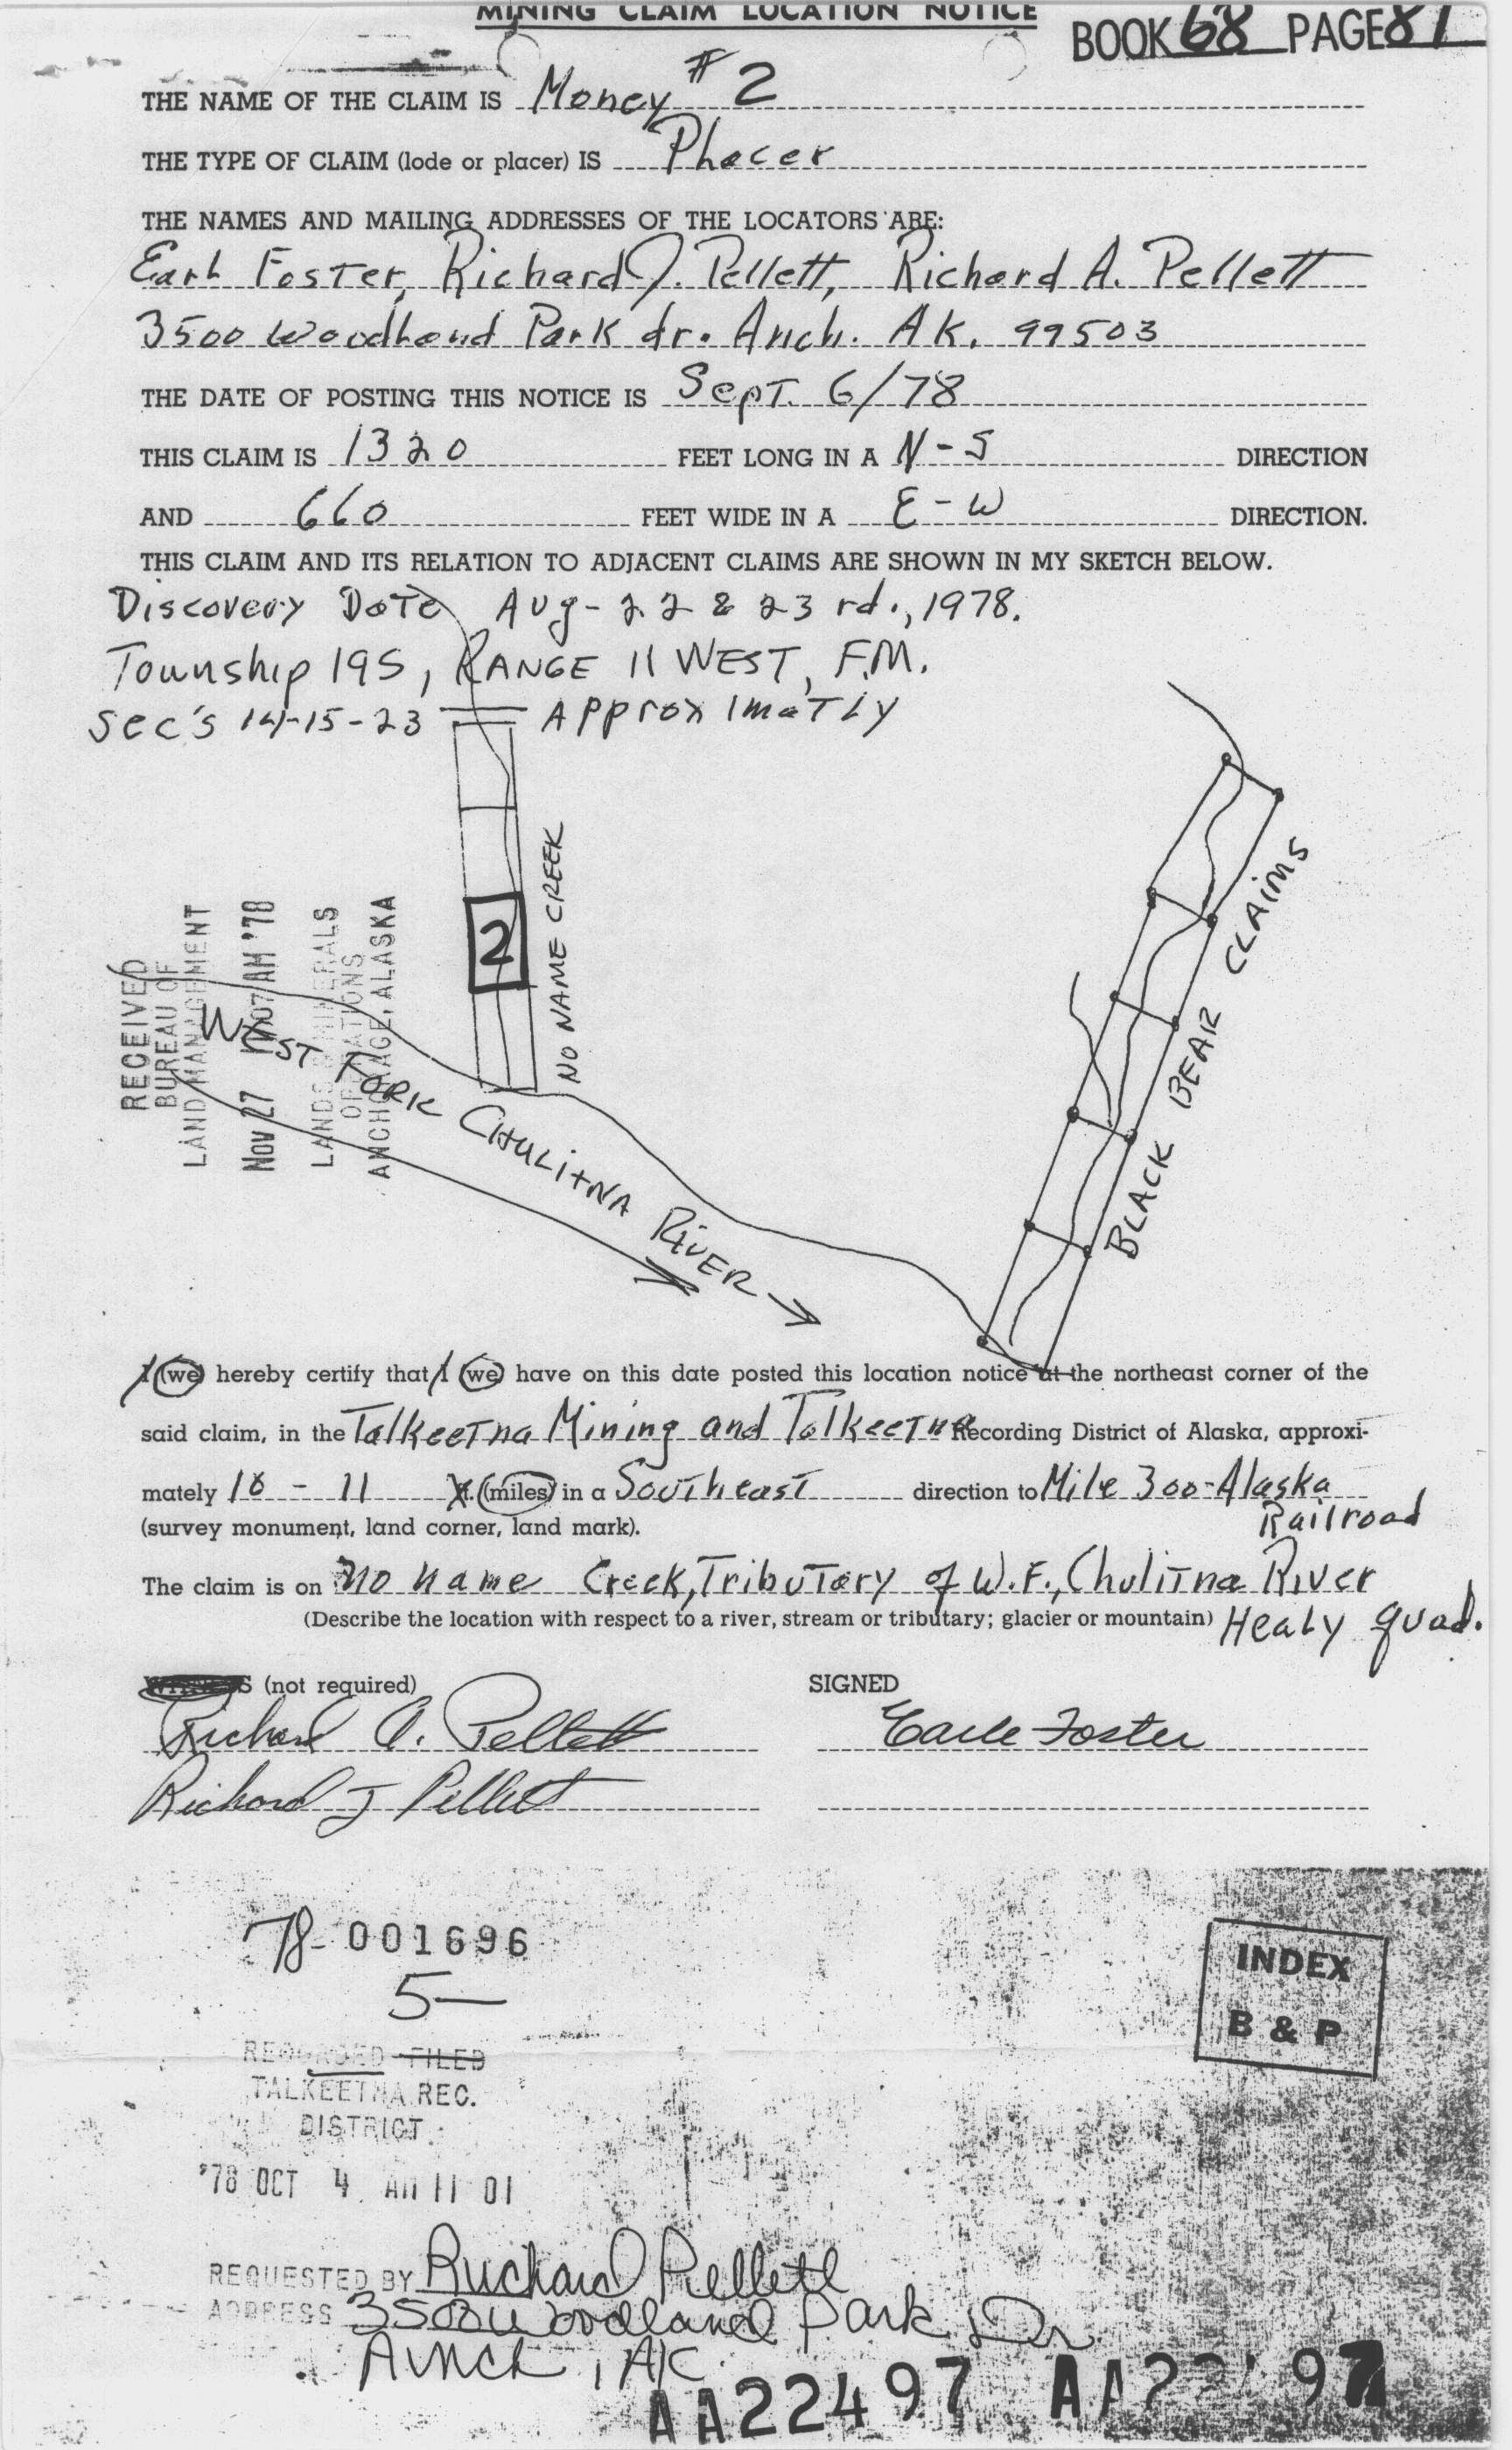 MINING CLAIM LOCATION NOTICE
BOOK 68 PAGE 81
THE NAME OF THE CLAIM IS Money #2
THE TYPE OF CLAIM (lode or placer) IS Phacer
THE NAMES AND MAILING ADDRESSES OF THE LOCATORS ARE:
Earl Foster, Richard J. Pellett, Richard A. Pellett
3500 Woodland Park dr. Anch. AK. 99503
THE DATE OF POSTING THIS NOTICE IS Sept. 6/78
THIS CLAIM IS 1320 FEET LONG IN A N-S DIRECTION
AND 660 FEET WIDE IN A E-W DIRECTION.
THIS CLAIM AND ITS RELATION TO ADJACENT CLAIMS ARE SHOWN IN MY SKETCH BELOW.
Discovery Date Aug-22 & 23 rd., 1978.
Township 19S, RANGE 11 WEST, F.M.
Sec's 14-15-23 Approximatly
2
NO NAME CREEK
BLACK BEAR CLAIMS
RECEIVED
BUREAU OF
LAND MANAGEMENT
Nov 27 07 AM '78
LANDS MINERALS
OPERATIONS
ANCHORAGE, ALASKA
WEST FORK CHULITNA RIVER
I (we) hereby certify that I (we) have on this date posted this location notice at the northeast corner of the
said claim, in the Talkeetna Mining and Talkeetna Recording District of Alaska, approxi-
mately 10 - 11 ft. (miles) in a Southeast direction to Mile 300-Alaska
Railroad
(survey monument, land corner, land mark).
The claim is on no name Creek, Tributary of W.F., Chulitna River
(Describe the location with respect to a river, stream or tributary; glacier or mountain) Healy quad.
WITNESS (not required) SIGNED
Richard A. Pellett Earle Foster
Richard J Pellett
78-001696
5—
INDEX
B & P
RECORDED FILED
TALKEETNA REC.
DISTRICT
'78 OCT 4 AM 11 01
REQUESTED BY Richard Pellett
ADDRESS 3500 Woodland Park Dr
Anch, AK.
AA22497 AA22 97